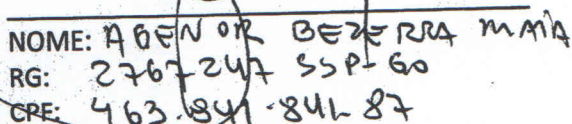 NOME: AGENOR BEZERRA MAIA
RG: 2767247 SSP-GO
CPF: 463.841.841-87